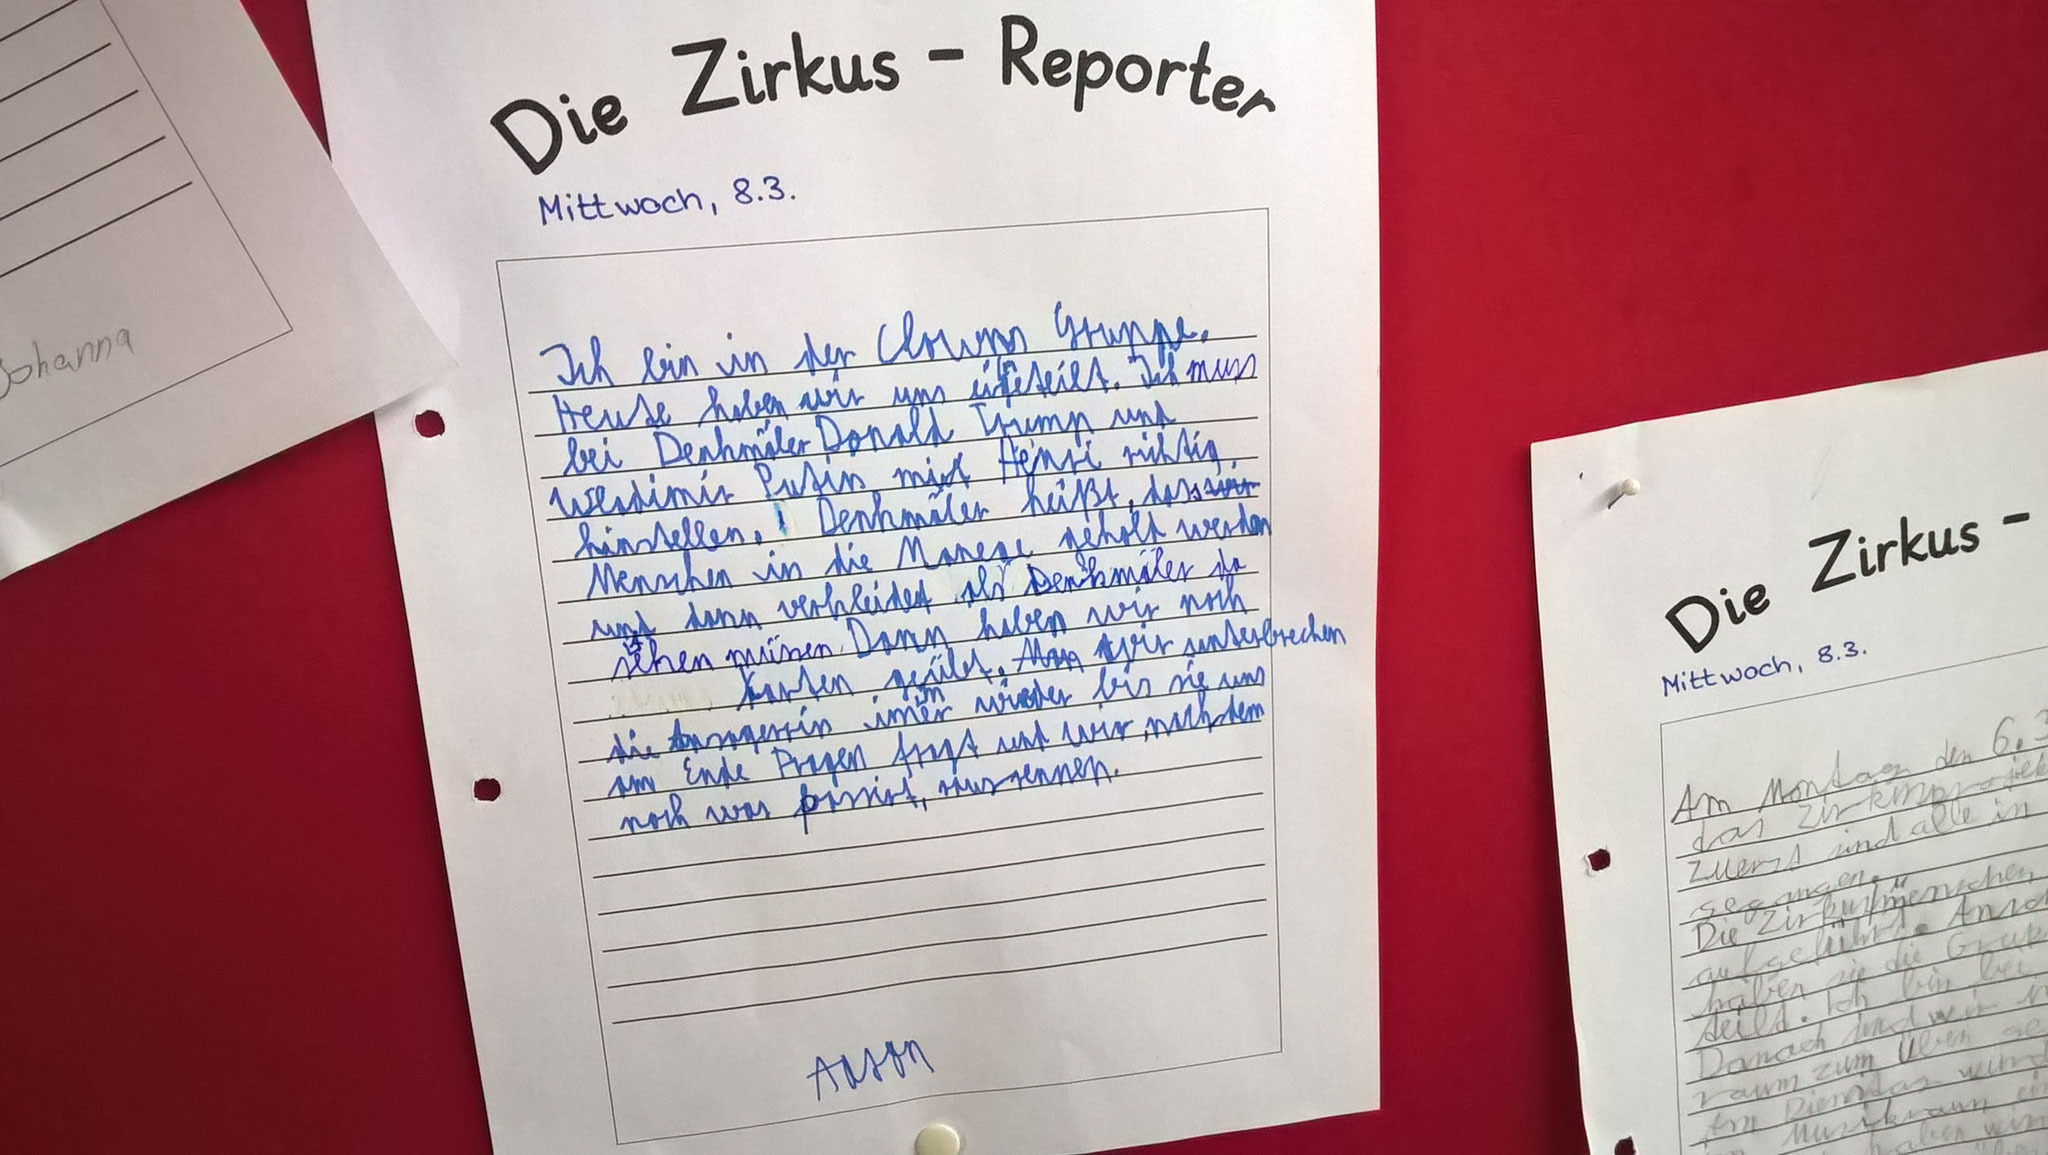 Johanna
Die Zirkus - Reporter
Mittwoch, 8.3.
Ich bin in der Clowns Gruppe.
Heute haben wir uns eingeteilt. Ich muss
bei Denkmäler Donald Trump und
Wladimir Putin mit Henri richtig
hinstellen. Denkmäler heißt, dass
Menschen in die Manege geholt werden
und dann verkleidet als Denkmäler da
stehen müssen. Dann haben wir noch
Karten geübt. Wir unterbrechen
die Ansagerin immer wieder bis sie uns
am Ende Fragen fragt und wir, nachdem
noch was passirt, rausrennen.
Anton
Die Zirkus -
Mittwoch, 8.3.
Am Montag den 6.3
das Zirkusprojek
Zuerst sind alle in
gegangen.
Die Zirkusmenschen
aufgeführt.
haben sie die Grup
teilt. Ich bin bei
Danach sind wir
raum zum Üben ge
Am Dienstag wurd
Musikraum ei
haben wir